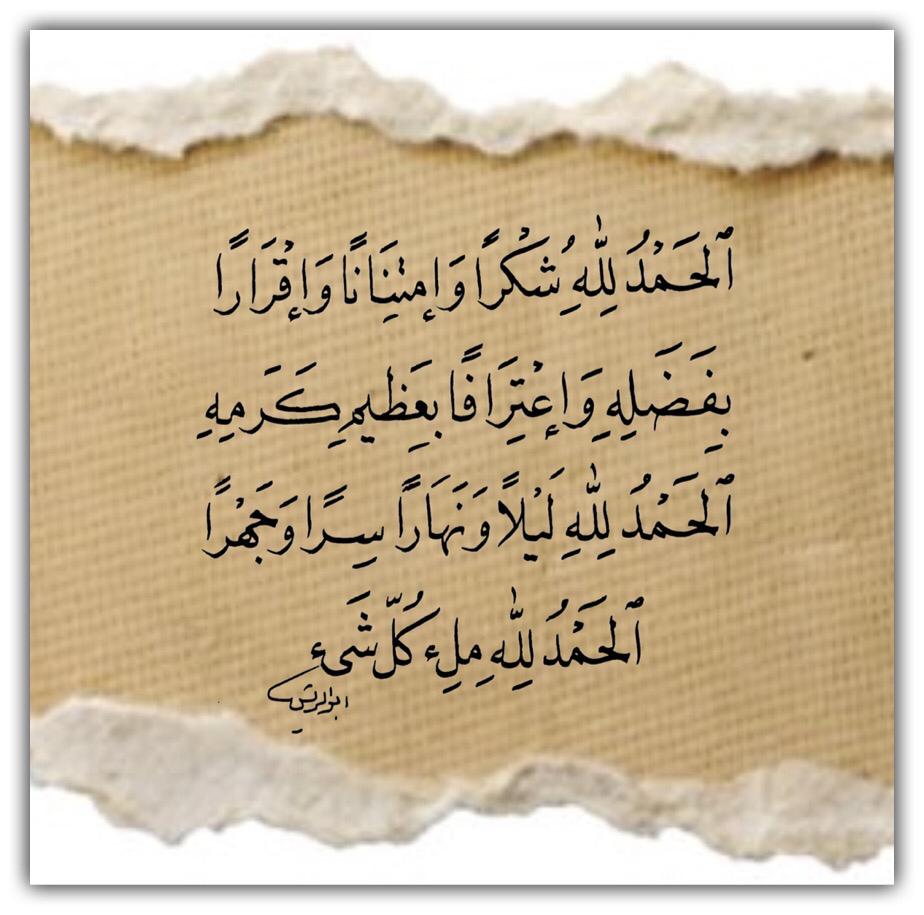 ٱلْحَمْدُ لِلّٰهِ شُكْرًا وَإِمْتِنَانًا وَإِقْرَارًا
بِفَضَلِهِ وَإِعْتِرَافًا بِعَظِيمِ كَرَمِهِ
ٱلْحَمْدُ لِلّٰهِ لَيْلاً وَنَهَارًا سِرًا وَجَهْرًا
ٱلْحَمْدُ لِلّٰهِ مِلِء كُلّ شَىء